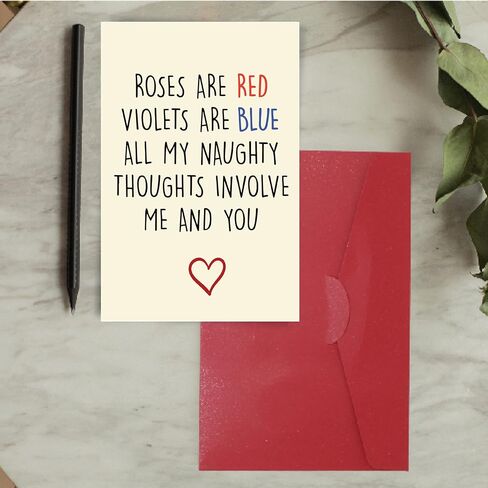 ROSES ARE RED
VIOLETS ARE BLUE
ALL MY NAUGHTY
THOUGHTS INVOLVE
ME AND YOU